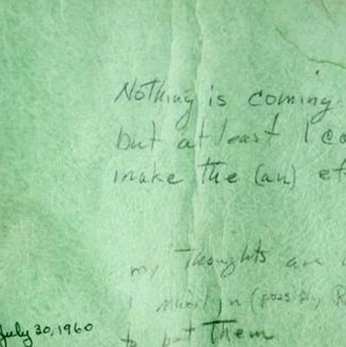 Nothing is coming
but at least I co
make the (an) ef
my thoughts are
(possibly R
to put Them
July 30, 1960